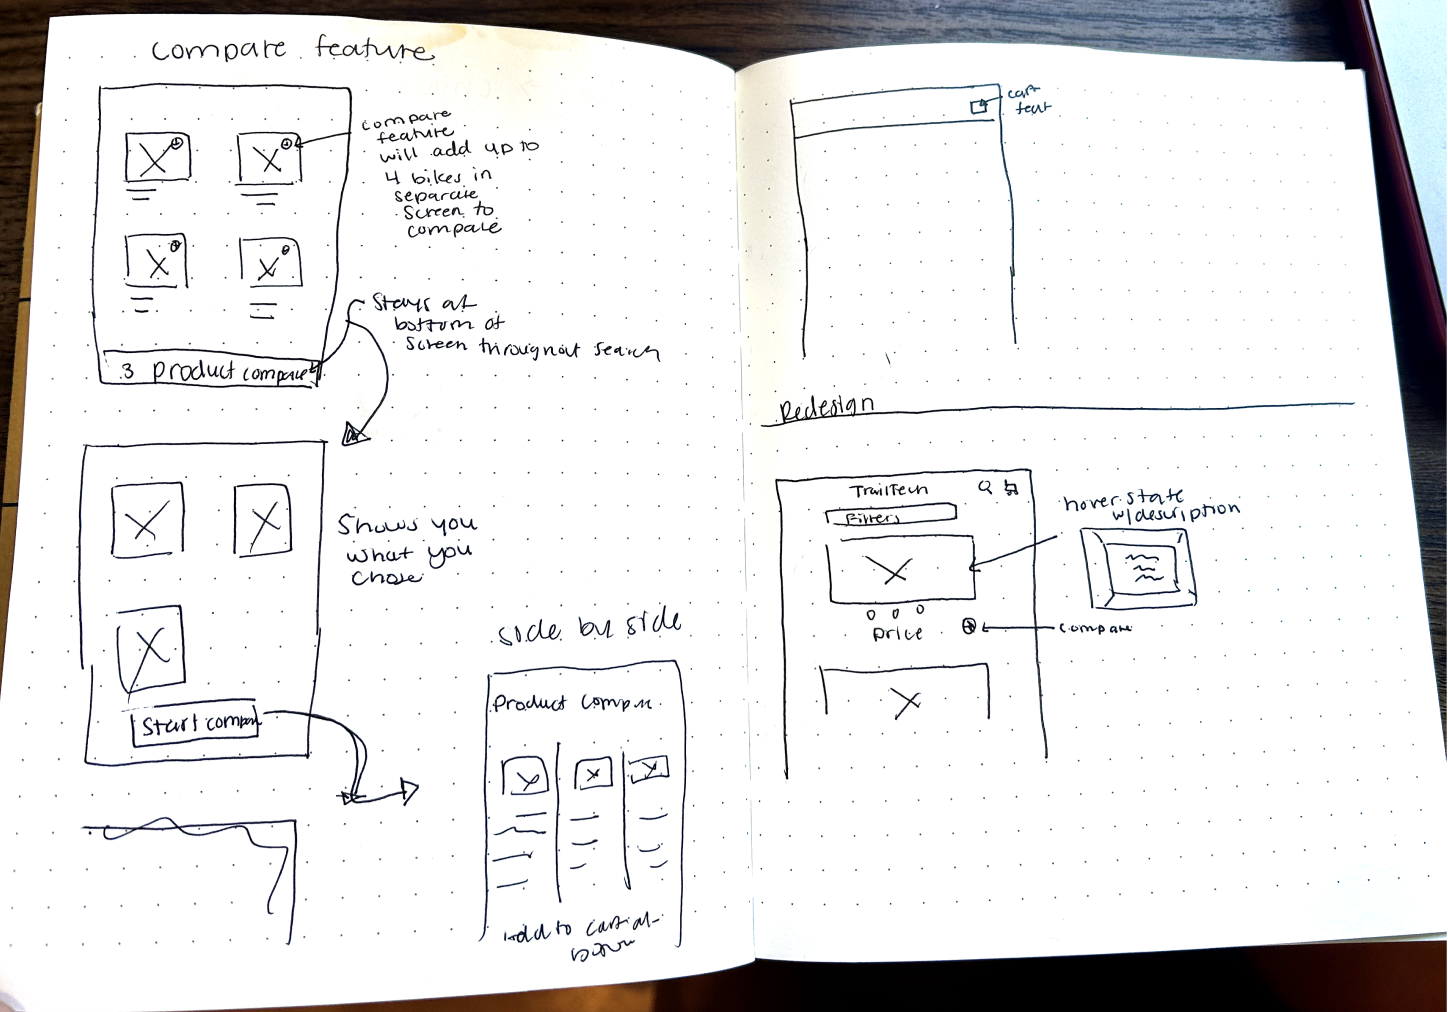 compare feature
compare
feature
will add up to
4 bikes in
separate
screen to
compare
Stays at
bottom of
screen throughout search
3 product compare
Shows you
what you
chose
Start compare
side by side
Product Compare
Add to cart at
bottom
cart
Redesign
TrailTech
Filters
hover state
w/description
Price
compare